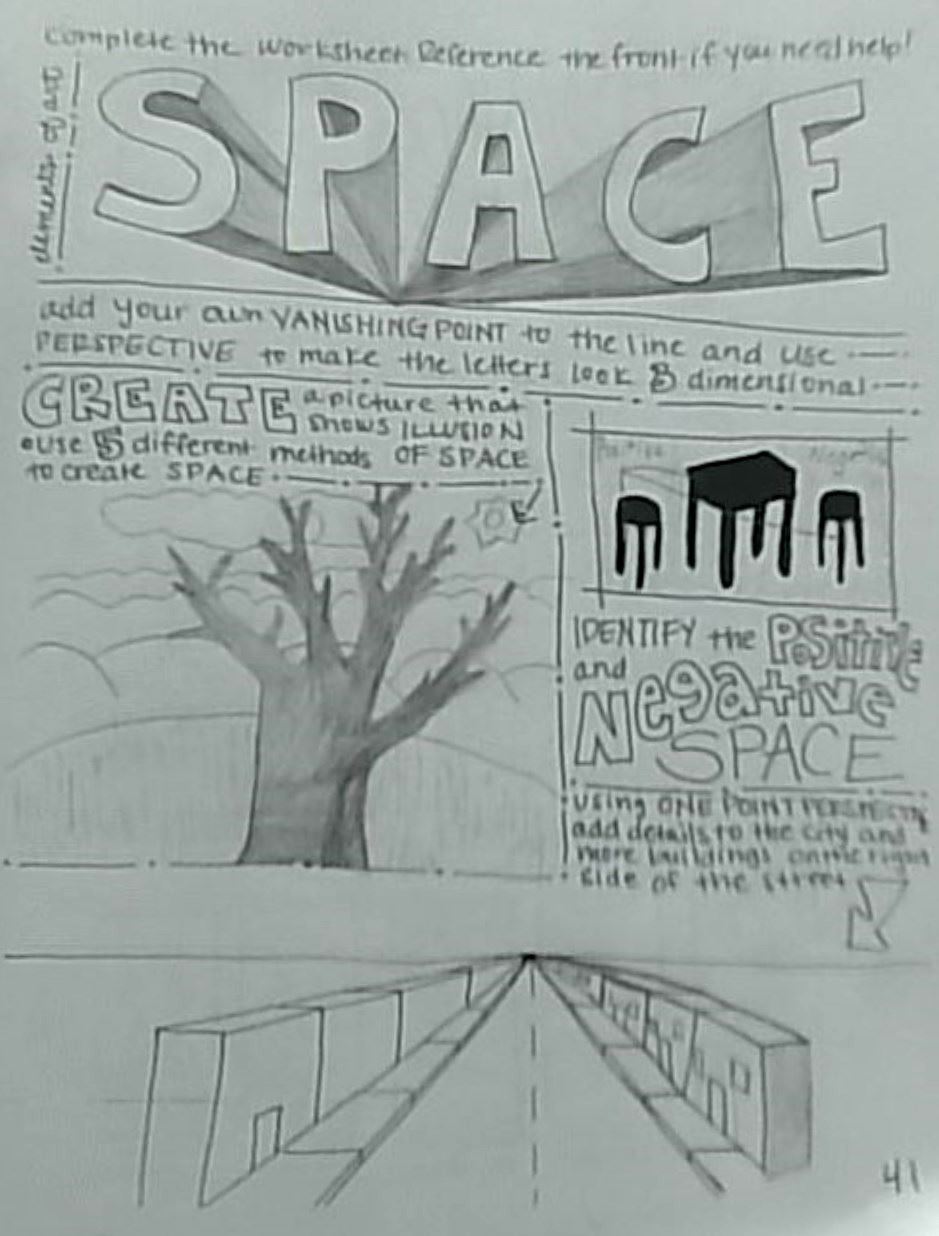 Complete the worksheet Reference the front if you need help!
elements of art
SPACE
add your own VANISHING POINT to the line and use
PERSPECTIVE to make the letters look 3 dimensional
CREATE a picture that
shows ILLUSION
use 5 different methods OF SPACE
to create SPACE
Positive Negative
IDENTIFY the Positive
and
Negative
SPACE
using ONE POINT PERSPECTIVE
add details to the city and
more buildings on the right
side of the street
41